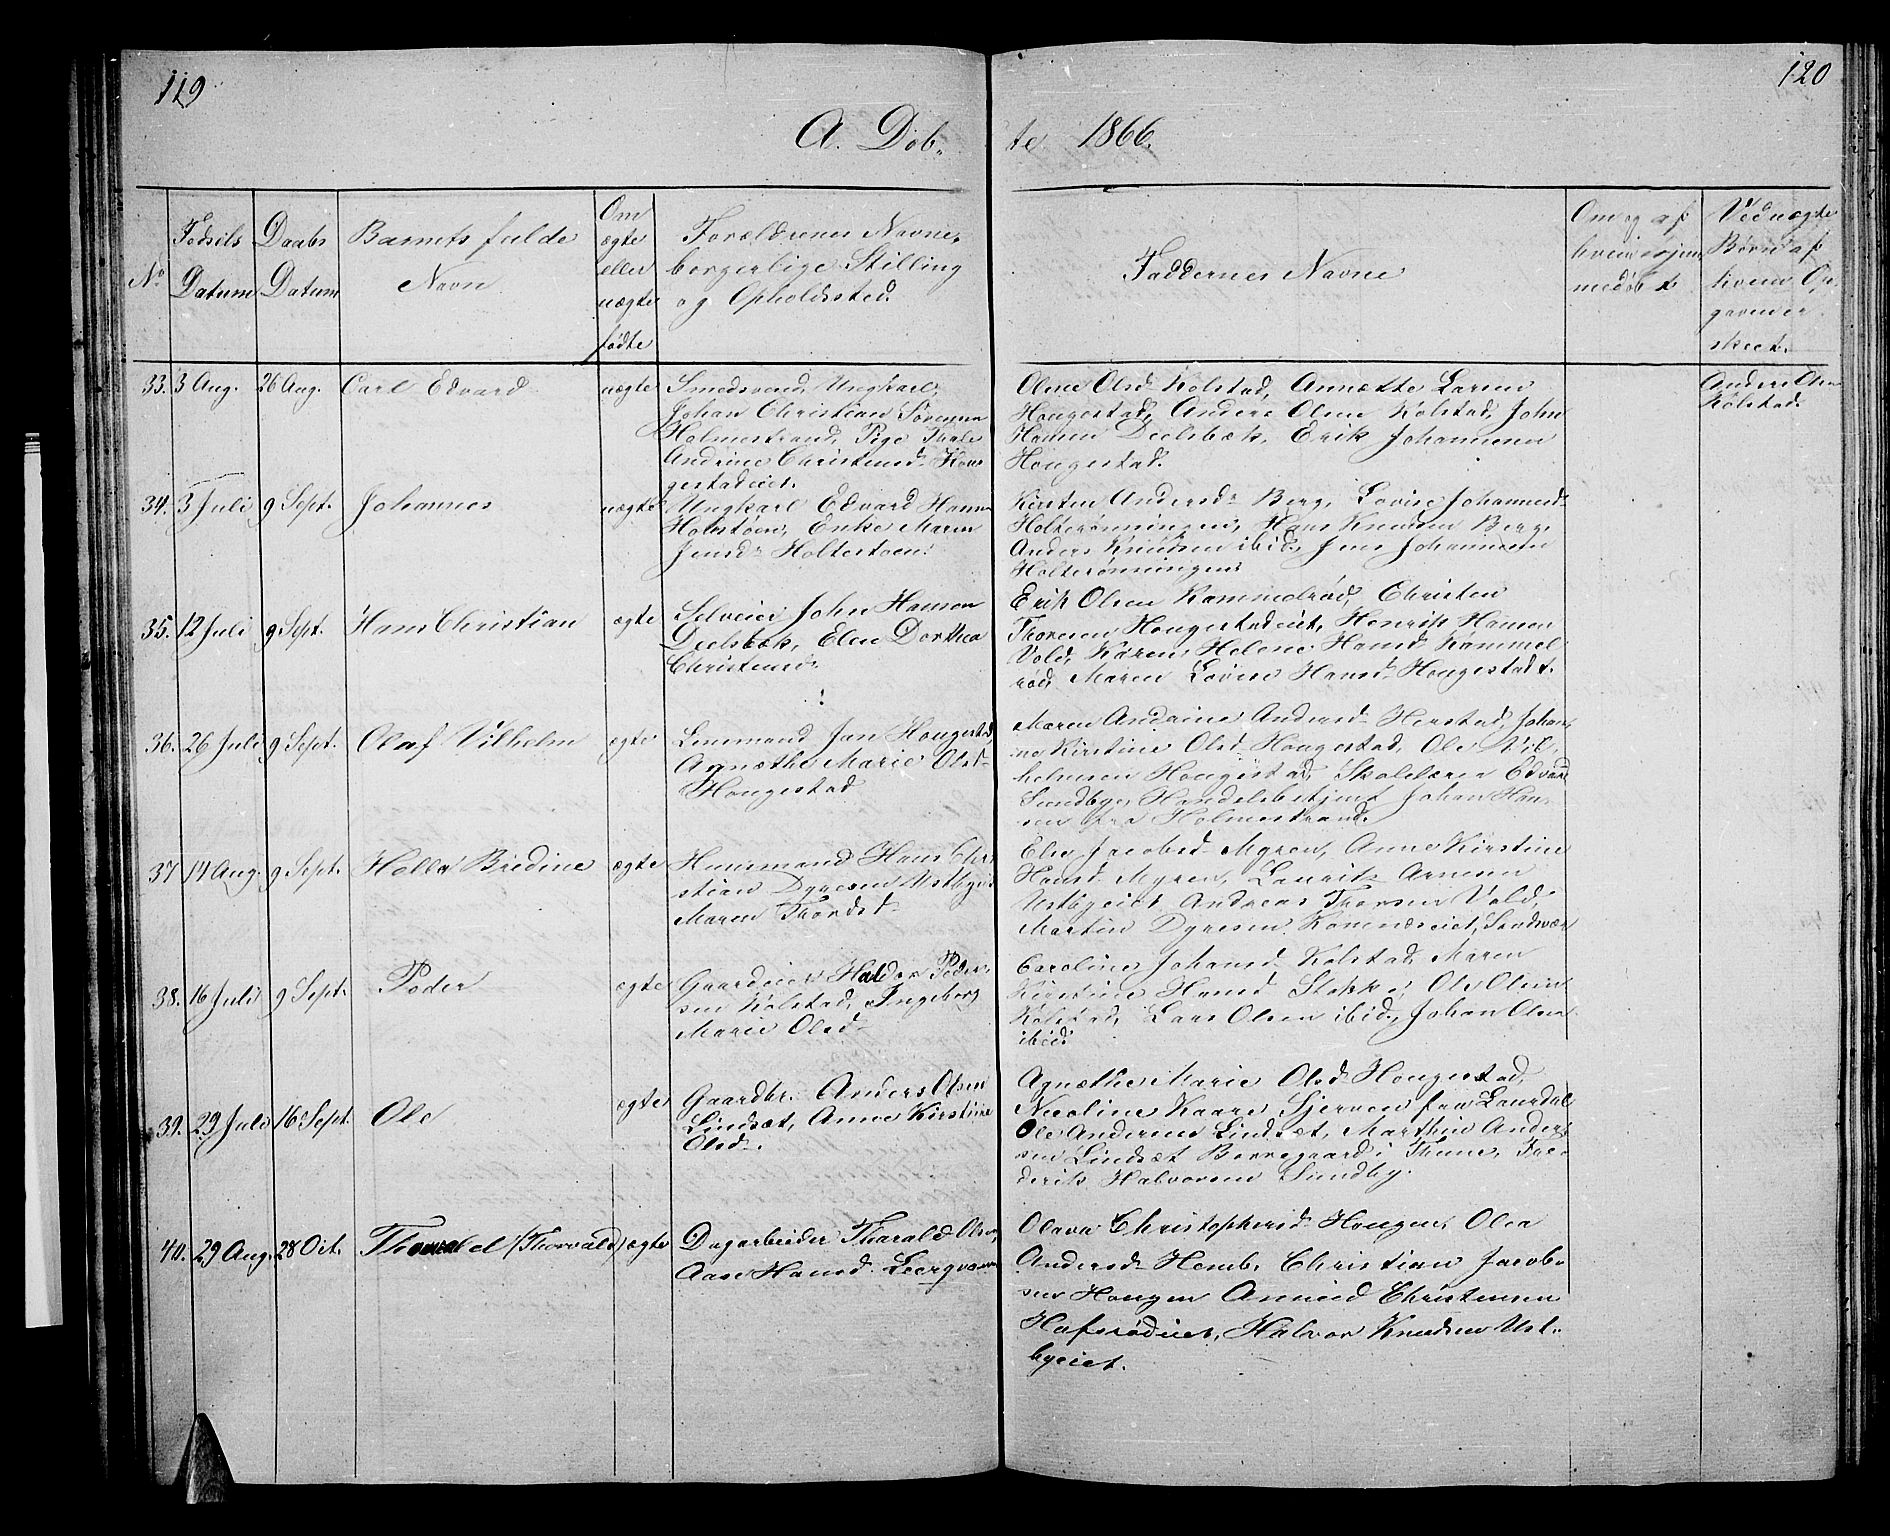 119
120
A. Døb„
te 1866.
No
Fødsels
Datum
Daabs
Datum
Barnets fulde
Navn
Om
ægte
eller
uægte
fødte
Forældrenes Navne,
borgerlige Stilling
og Opholdssted.
Faddernes Navne
Om og af
hvem
Ved uægte
Børn af
hvem Op„
skeet.
33. 3 Aug. 26 Aug. Carl Edvard uægte
Smedsvend, Ungkarl,
Johan Christian Sørensen
Holmestrand, Pige Thale
Andrine Christensd. Hou„
gestadeiet.
Olene Olsd. Kolstad, Annætte Larsen
Hougestad, Anders Olsen Kolstad, John
Hansen Deelsbæk, Erik Johannesen
Hougestad.
Anders Olsen
Kolstad.
34. 3 Juli 9 Sept. Johannes uægte
Ungkarl Edvard Hansen
Holtstøen, Enke Maren
Jensd. Holtestøen.
Kirsten Andersd. Berg, Lovise Johannesd.
Holterønningen, Hans Knudsen Berg,
Anders Knudsen ibid, Jens Johannesen
Holterønningen.
35. 12 Juli 9 Sept. Hans Christian ægte
Selveier John Hansen
Deelsbæk, Elen Dorthea
Christensd.
Erik Olsen Rammelrød, Christen
Thoresen Hougestadeiet, Henrik Hansen
Vold, Karen Helene Hansd. Rammel
rød, Maren Lovise Hansd. Hougestad.
36. 26 Juli 9 Sept. Olaf Vilhelm ægte
Lensmand Jan Hougestad,
Agnæthe Marie Olsd.
Hougestad
Maren Andrine Andersd. Herstad, Johan„
ne Kirstine Olsd. Hougestad, Ole Vil„
helmsen Hougestad, Skolelærer Edvard
Sundbye, Handelsbetjent Johan Han„
sen fra Holmestrand.
37 14 Aug. 9 Sept. Helle Bredine ægte
Huusmand Hans Chri
stian Dyresen Ustbyei
Maren Thordsd.
Else Jacobsd. Myren, Anne Kirstine
Hansd. Myren, Laurits Arnesen
Ustbyeiet, Andreas Thorsen Vold,
Martin Dyresen Ramnæseiet, Sandsvær
38. 16 Juli 9 Sept. Peder ægte
Gaardeier Halvor Peder„
sen Kolstad, Ingeborg
Marie Olsd.
Caroline Johansd. Kolstad, Maren
Kirstine Hansd. Stokke, Ole Olsen
Kolstad, Lars Olsen ibid., Johan Olsen
ibid.
39. 29 Juli 16 Sept. Ole ægte
Gaardbr. Anders Olsen
Lindsæt, Anne Kirstine
Olsd.
Agnæthe Marie Olsd. Hougestad,
Nicoline Kaare Sjerven fra Laurdal
Ole Andersen Lindsæt, Marthin Anders
sen Lindsæt Borregaard i Thune, Fre„
derik Halvorsen Sundby.
40. 29 Aug. 28 Oct. (Thorvald) ægte
Dagarbeider Tharald Olsen,
Aase Hansd. Leergraven
Olava Christophersd. Hougen, Olea
Andersd. Hemb, Christian Jacob„
sen Hougen Amund Christensen
Hafsrødeiet, Halvor Knudsen Ust„
byeiet.